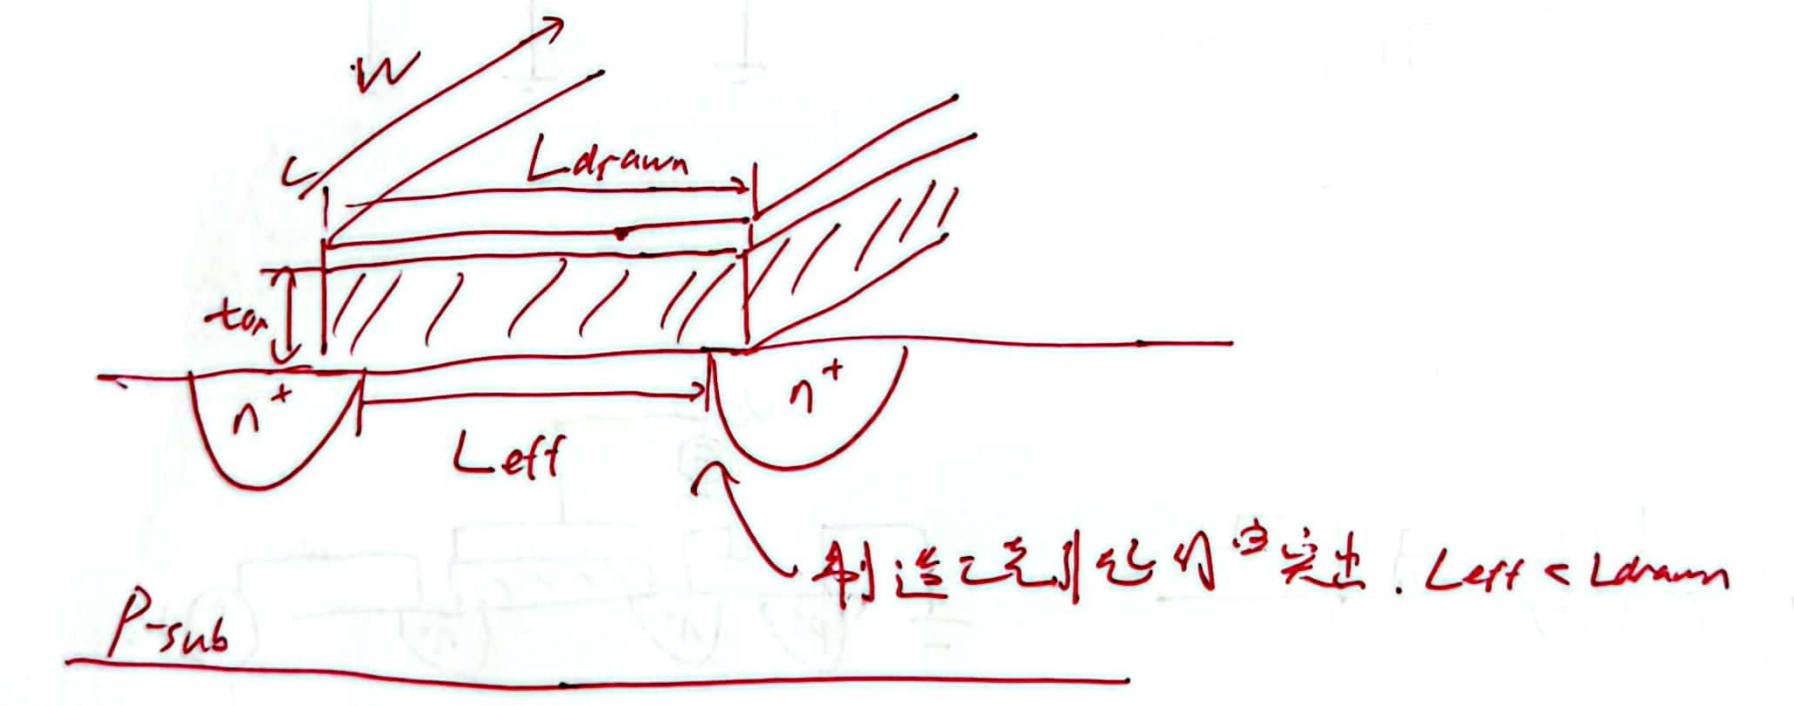 W
Ldrawn
tox
n+
n+
Leff
制造工艺引起的突出. Leff < Ldrawn
P-sub